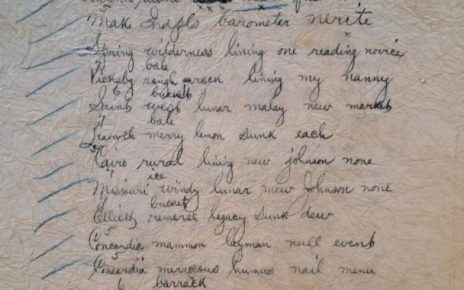 Make Snapls barometer nerite
Spring wilderness lining one reading novice
bale
Vicksbg rough green lining my nanny
6 bucket
Saints west lunar malay new market
bale
merry lemon sunk each
Cairo rural lining new johnson none
7 ice
Missouri windy lunar mew Johnson none
bucket
Celliette remerse legacy sunk dew
Concordia mammon layman null events
Concordia meraccous humus nail menu
6 barrack